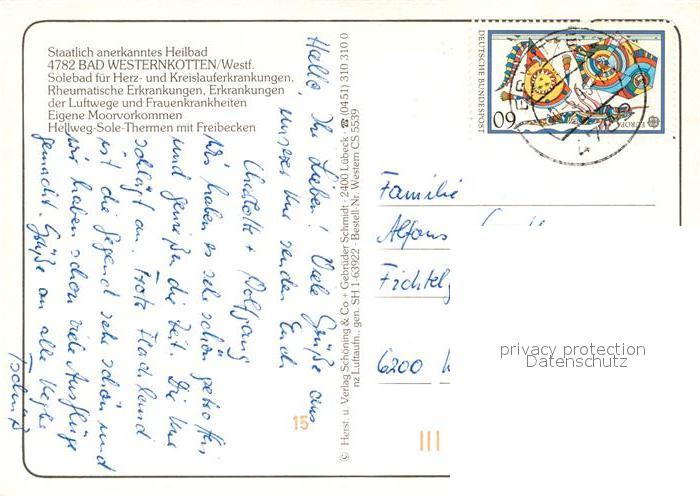 Staatlich anerkanntes Heilbad
4782 BAD WESTERNKOTTEN/Westf.
Solebad für Herz- und Kreislauferkrankungen,
Rheumatische Erkrankungen, Erkrankungen
der Luftwege und Frauenkrankheiten
Eigene Moorvorkommen
Hellweg-Sole-Thermen mit Freibecken
Hallo, Ihr Lieben! Viele Grüße aus
unserer Kur senden Euch
Charlotte + Wolfgang
Wir haben es sehr schön getroffen
und genießen die Zeit. Die Kur
schlägt an. Trotz Flachland
ist die Gegend sehr schön und
wir haben schon viele Ausflüge
gemacht. Grüße an alle
Tschüß
© Herst. u. Verlag Schöning & Co + Gebrüder Schmidt · 2400 Lübeck · ☎ (0451) 310 310 0
nz Luftaufn.. gen. SH 1-63922 · Bestell-Nr. Western CS 5539
DEUTSCHE BUNDESPOST
60
EUROPA
Familie
Alfons
Fichtel
6200
privacy protection
Datenschutz
15